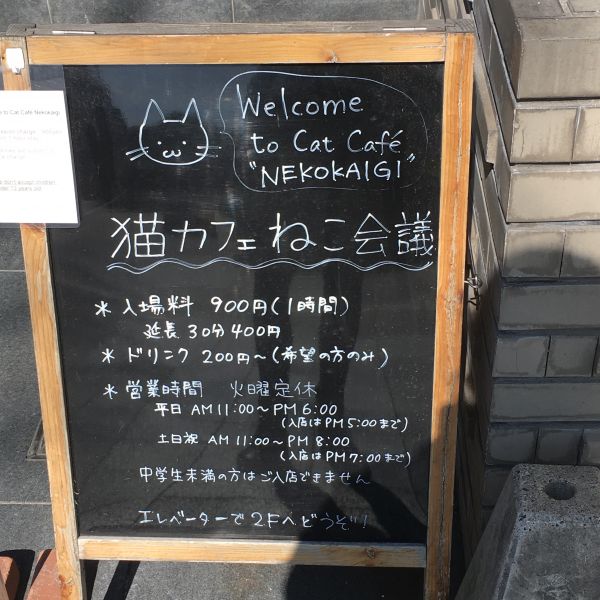 Welcome
to Cat Café
"NEKOKAIGI"
猫カフェねこ会議
* 入場料 900円(1時間)
延長 30分400円
* ドリンク 200円~(希望の方のみ)
* 営業時間 火曜定休
平日 AM11:00~PM6:00
(入店はPM5:00まで)
土日祝 AM11:00~PM8:00
(入店はPM7:00まで)
中学生未満の方はご入店できません
エレベーターで2Fへどうぞ!!
to Cat Café Nekokaigi